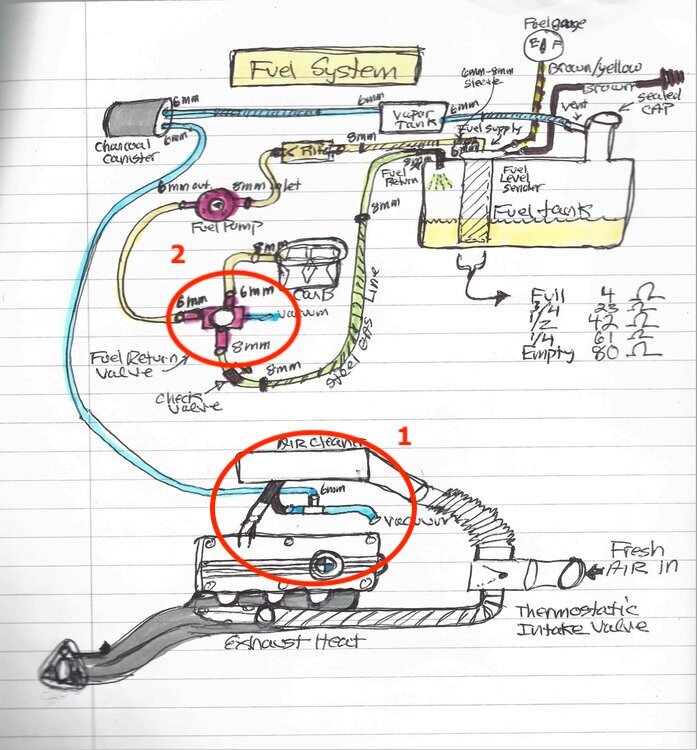 Fuel gauge
E F
Fuel System
Brown/yellow
6mm-8mm
sleeve
Brown
6mm
6mm
6mm
vent
sealed
CAP
Vapor
Tank
Fuel supply
6mm
Charcoal
Canister
6mm
8mm
8mm
Fuel
Return
Fuel
Level
Sender
Fuel tank
6mm out
8mm inlet
Fuel Pump
8mm
2
8mm
CARB
6mm
6mm
Vacuum
8mm
Fuel Return
Valve
Check
Valve
8mm
Steel GAS Line
Full 4 Ω
3/4 23 Ω
1/2 42 Ω
1/4 61 Ω
Empty 80 Ω
1
AIR Cleaner
6mm
Vacuum
Fresh
AIR in
Thermostatic
Intake Valve
Exhaust Heat